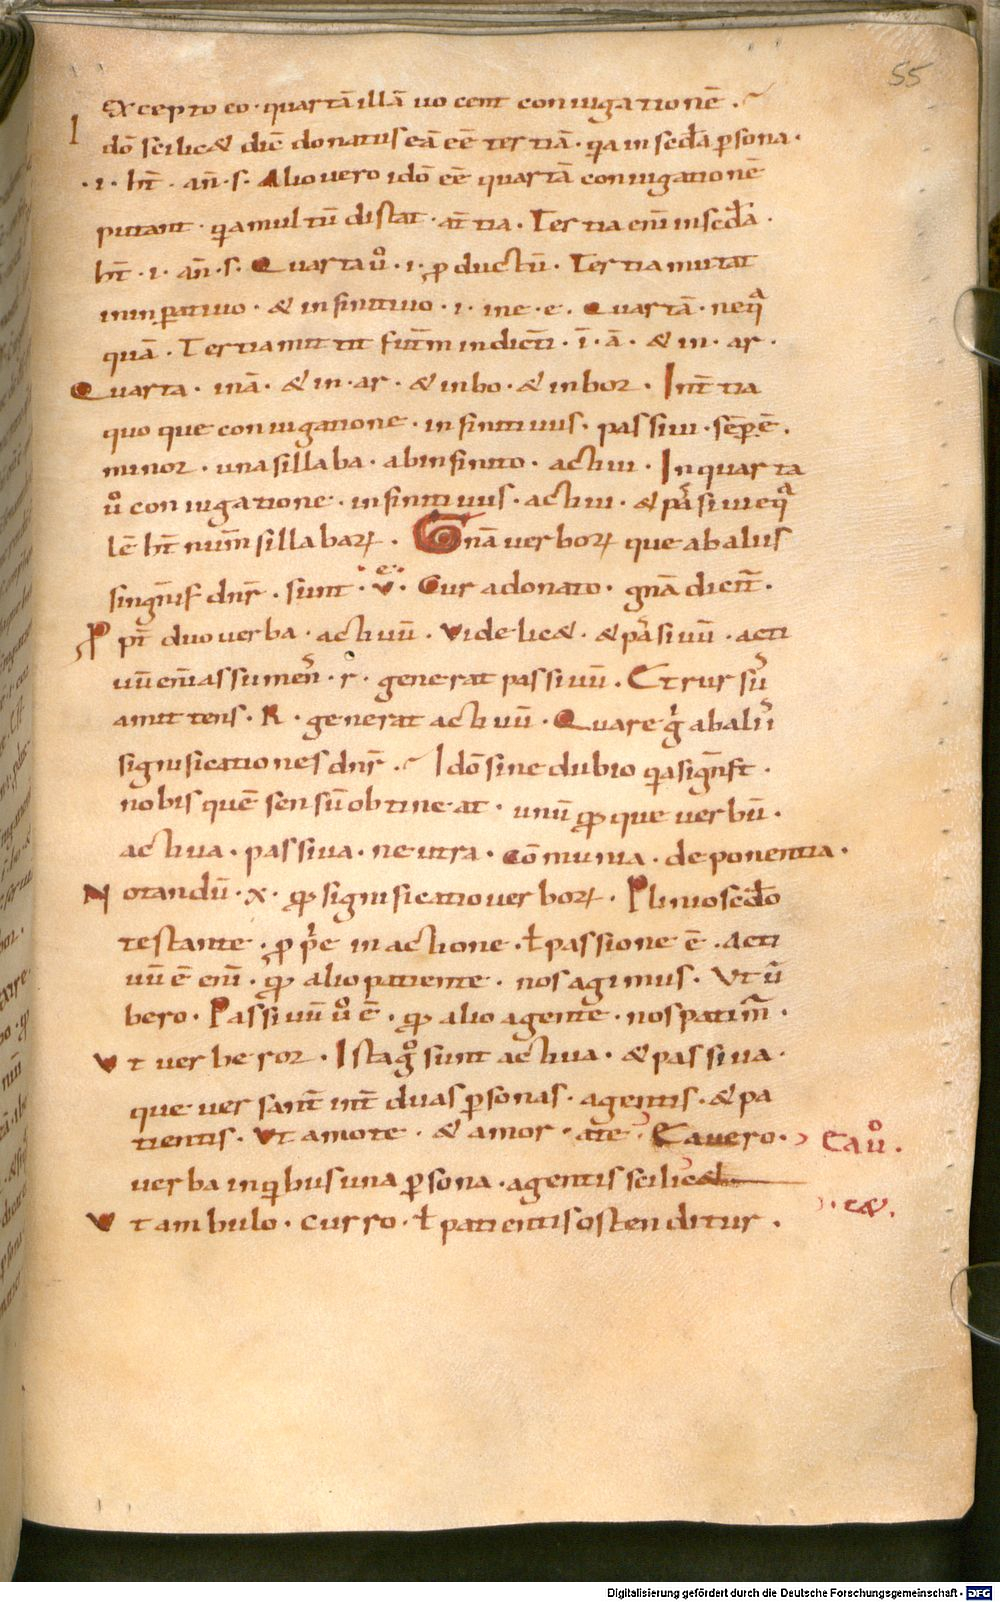 55
excepto eo · quartā illā uocent coniugationē .
Idō scilic& dic̄ donatus eā eē tertiā · q̄a in scd̄a p̱sona ·
· i · h̄t · an̄ · s · Alio uero idō eē quartā coniugationē
putant · q̄a multū distat · at̄tia . Tertia eni̅ in scd̄a .
h̄t · i · an̄ · s · Quarta uͦ · i · ꝓductū . Tertia mutat
in inp̱atiuo · & in finitiuo · i · in e · e . Quartā · neqᵃ
quā . Tertia mittit fut̄m indicti · ī · ā · & in · ar ·
Quarta · in ā · & in · ar · & in bo · & in bor . Int̄tia
quoque coniugatione · infinitiuus · passiui · sēp̱ ē .
minor · una sillaba · ab infinito · actiui . In quarta
uͦ coniugatione · infinitiuus · actiui · & pas̄iui eqᵃ
lē h̄t num̄ sillabaꝝ . Gn̄a uerboꝝ que ab aliis
sign̄if dn̄r . sunt · v̇ᵉ· Cur a donato · gn̄a dicn̄t .
Ꝓpt̄ duo uerba · actiuū . Videlic& · & pas̄iuū · acti
uū eni̅ assumen̄s · r · generat passiuū . Et rursū
amittens · R · generat actiuū . Quare gͦ ab aliis
significationes dn̄r . Idō sine dubio q̄a sign̄ft .
nobis quē sensū obtineat · unū ꝙque uerbū .
actiua · passiua · neutra · cōmunia · deponentia .
Notandū · x · ꝙ significatio uerboꝝ · Plinio scd̄o
testante · ꝓpͥe in actione · ł passione ē . Acti
uū ē eni̅ · ꝙ alio patiente · nos agimus . Vt ū
bero . Passiuū uͦ ē · ꝙ alio agente · nos patim̄ .
Vt uerberor . Ista gͦ sunt actiua · & passiua ·
que uersant̄ int̄ duas p̱sonas · agentis · & pa
tientis . Vt amo te · & amor · a te . Ea uero · Ea uͦ .
uerba in qͥbus una p̱sona · agentis scilic& · c& .
Vt ambulo · curro · ł patientis ostenditur .
Digitalisierung gefördert durch die Deutsche Forschungsgemeinschaft - DFG